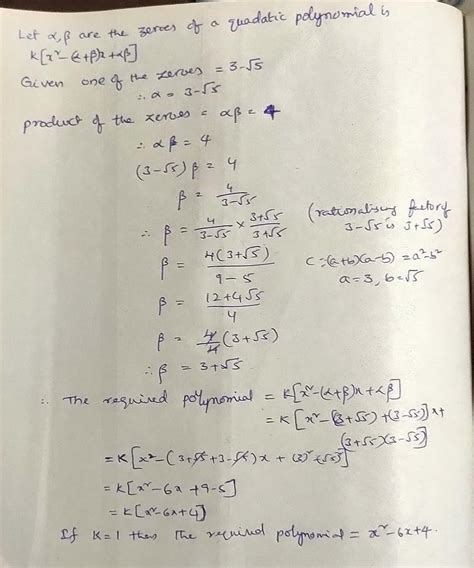 Let α, β are the zeroes of a quadatic polynomial is
K[x² - (α+β)x + αβ]
Given one of the zeroes = 3-√5
∴ α = 3-√5
product of the zeroes = αβ = 4
∴ αβ = 4
(3-√5) β = 4
β = 4/(3-√5)
∴ β = 4/(3-√5) × (3+√5)/(3+√5) (rationalising factory 3-√5 is 3+√5)
β = 4(3+√5)/(9-5) (∵(a+b)(a-b) = a²-b²
a=3, b=√5
β = (12+4√5)/4
β = 4/4 (3+√5)
∴ β = 3+√5
∴ The required polynomial = K[x² - (α+β)x + αβ]
= K[x² - (3+√5) + (3-√5)]x +
(3+√5)(3-√5)]
= K[x² - (3+√5+3-√5)x + (3)² - (√5)²]
= K[x² - 6x + 9-5]
= K[x² - 6x + 4]
If K=1 then The required polynomial = x² - 6x + 4.